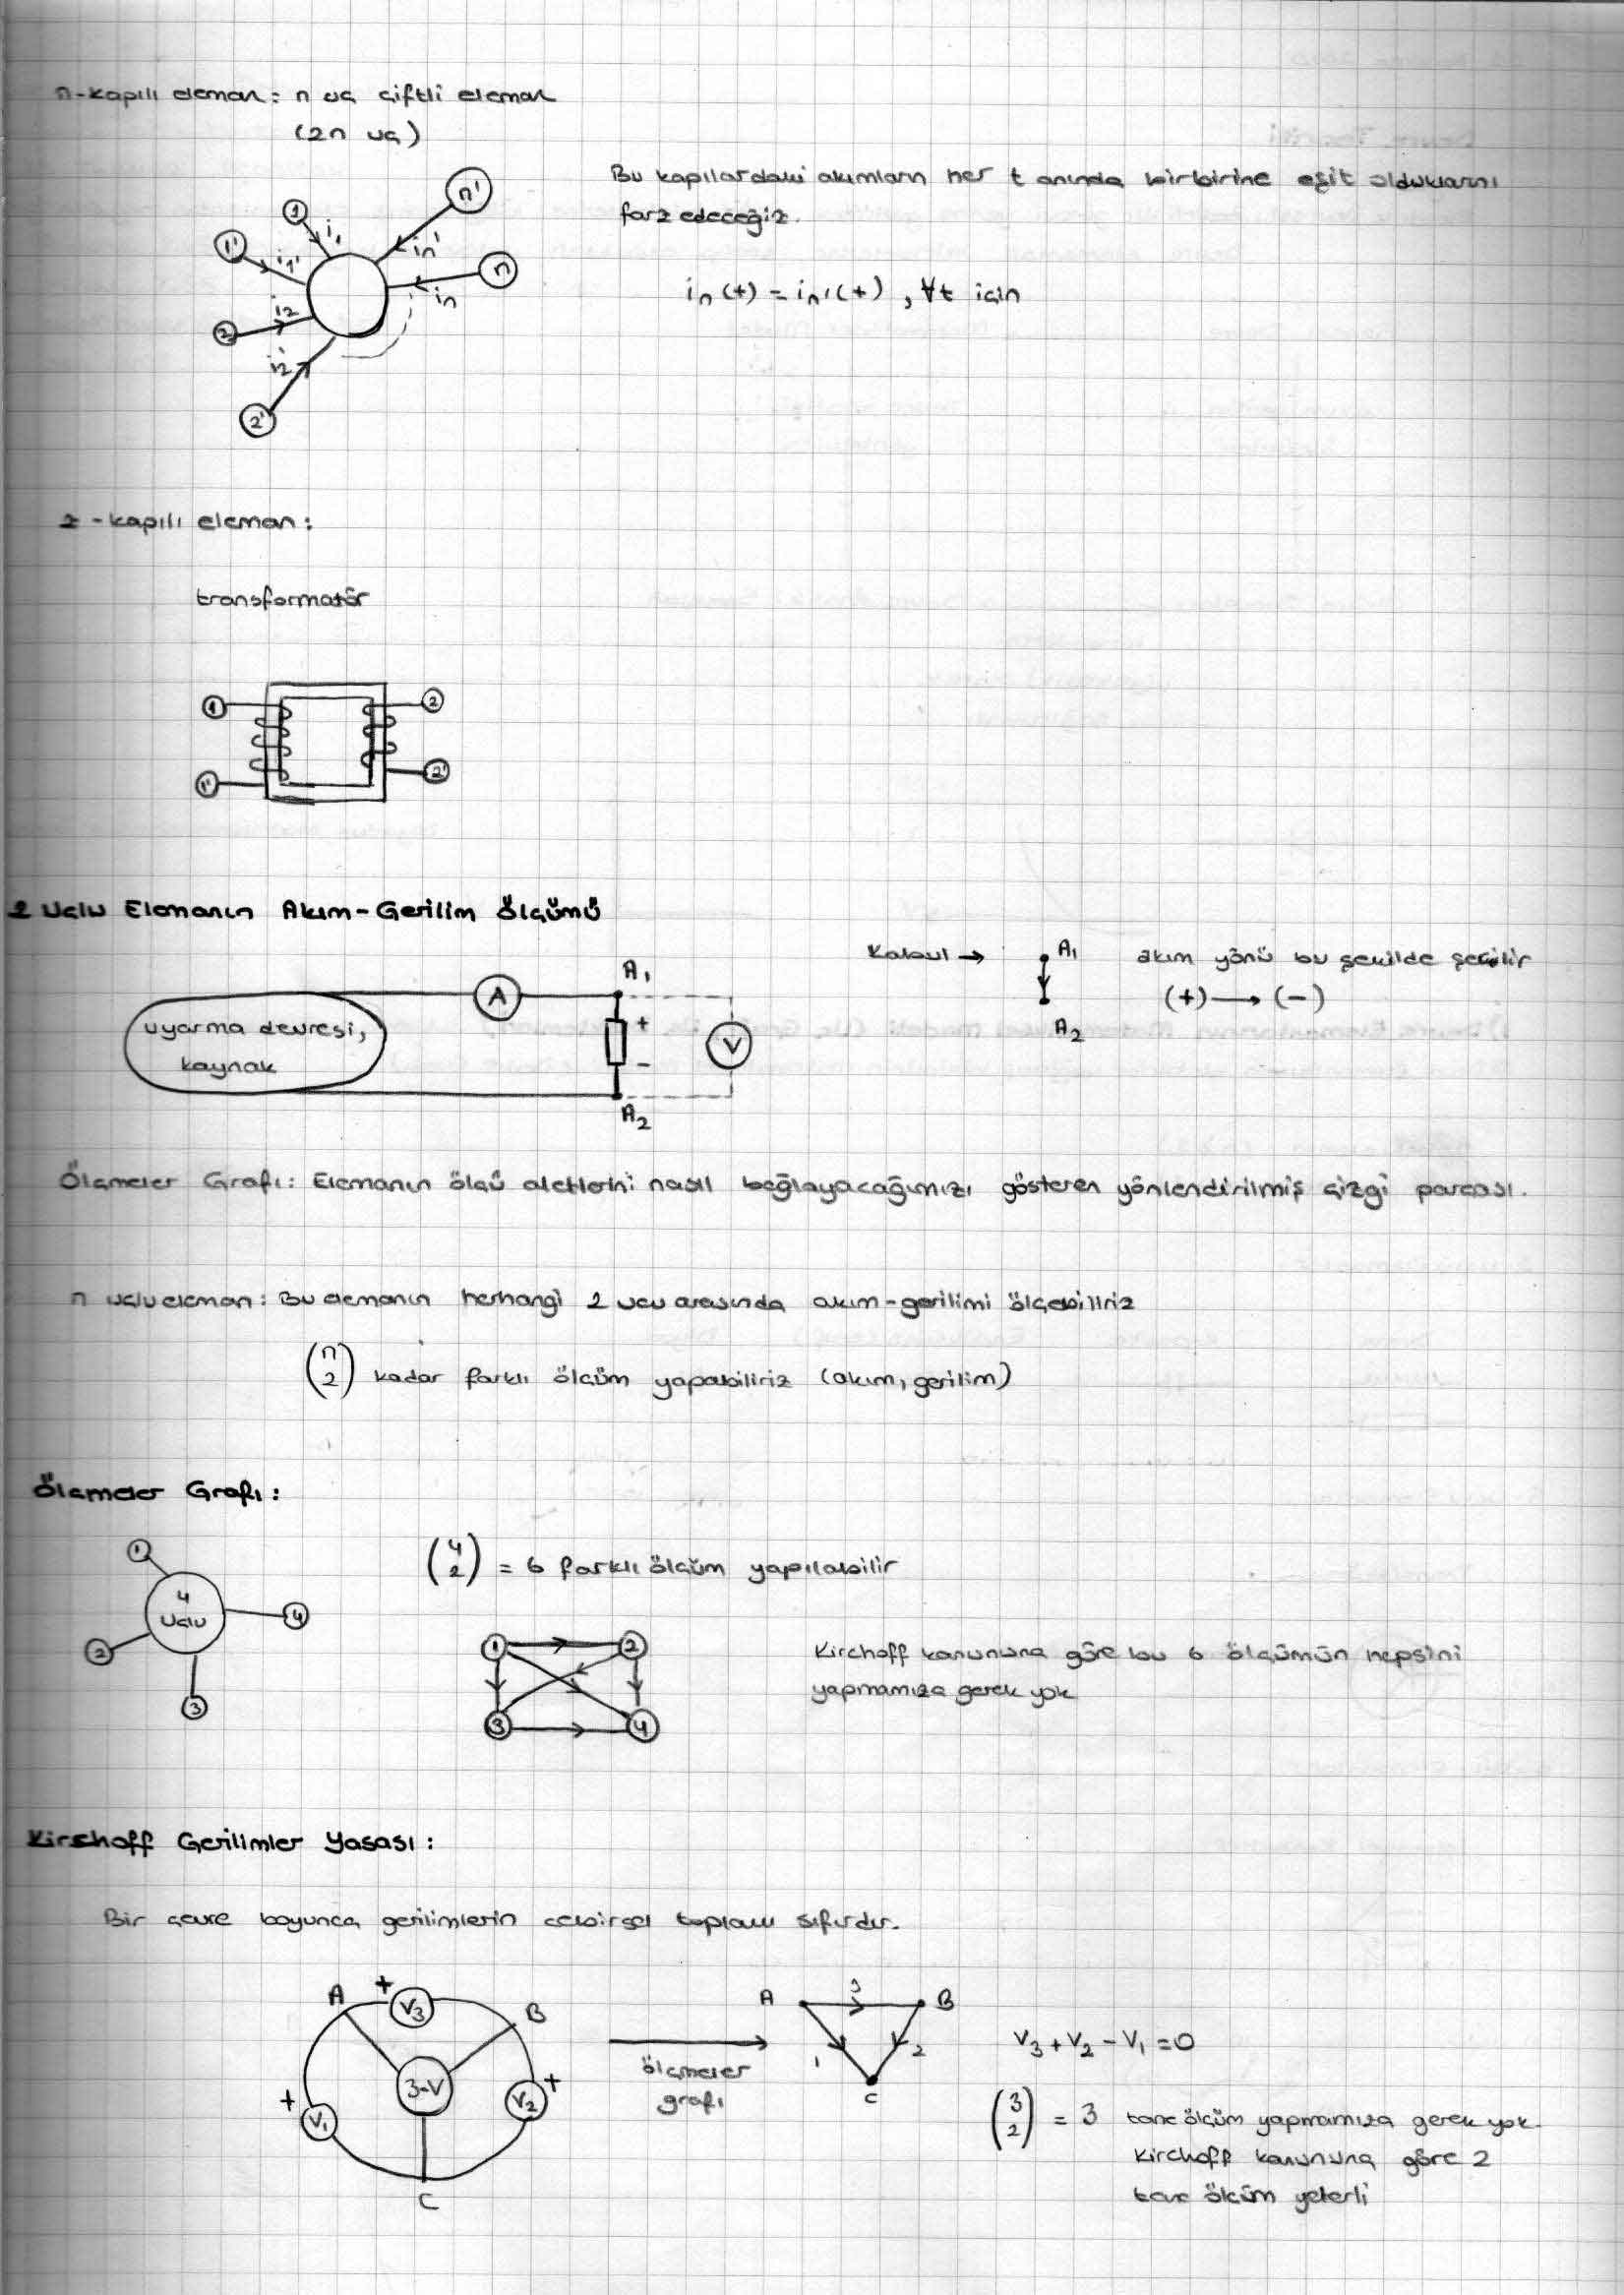 n-kapılı eleman: n uç çiftli eleman
(2n uç)
Bu kapılardaki akımların her t anında birbirine eşit olduklarını
farz edeceğiz.
in(t) = in'(t) , ∀t için
1 i1 n' in'
1' i1' n in
2 i2
2' i2'
2-kapılı eleman:
transformatör
1 2
1' 2'
2 Uçlu Elemanın Akım-Gerilim Ölçümü
uyarma devresi,
kaynak
A A1 + - V A2
Kabul → A1 A2
akım yönü bu şekilde seçilir
(+) → (-)
Ölçmeler Grafı: Elemanın ölçü aletlerini nasıl bağlayacağımızı gösteren yönlendirilmiş çizgi parçası.
n uçlu eleman: Bu elemanın herhangi 2 ucu arasında akım-gerilimi ölçebiliriz
(n 2) kadar farklı ölçüm yapabiliriz (akım, gerilim)
Ölçmeler Grafı:
1 2 3 4
4
uçlu
(4 2) = 6 farklı ölçüm yapılabilir
1 2
3 4
Kirchoff kanununa göre bu 6 ölçümün hepsini
yapmamıza gerek yok
Kirschoff Gerilimler Yasası:
Bir çevre boyunca gerilimlerin cebirsel toplamı sıfırdır.
A + V3 B
3-V
+ V1 V2 +
C
ölçmeler
grafı
A 3 B
1 2
C
V3 + V2 - V1 = 0
(3 2) = 3 tane ölçüm yapmamıza gerek yok.
Kirchoff kanununa göre 2
tane ölçüm yeterli